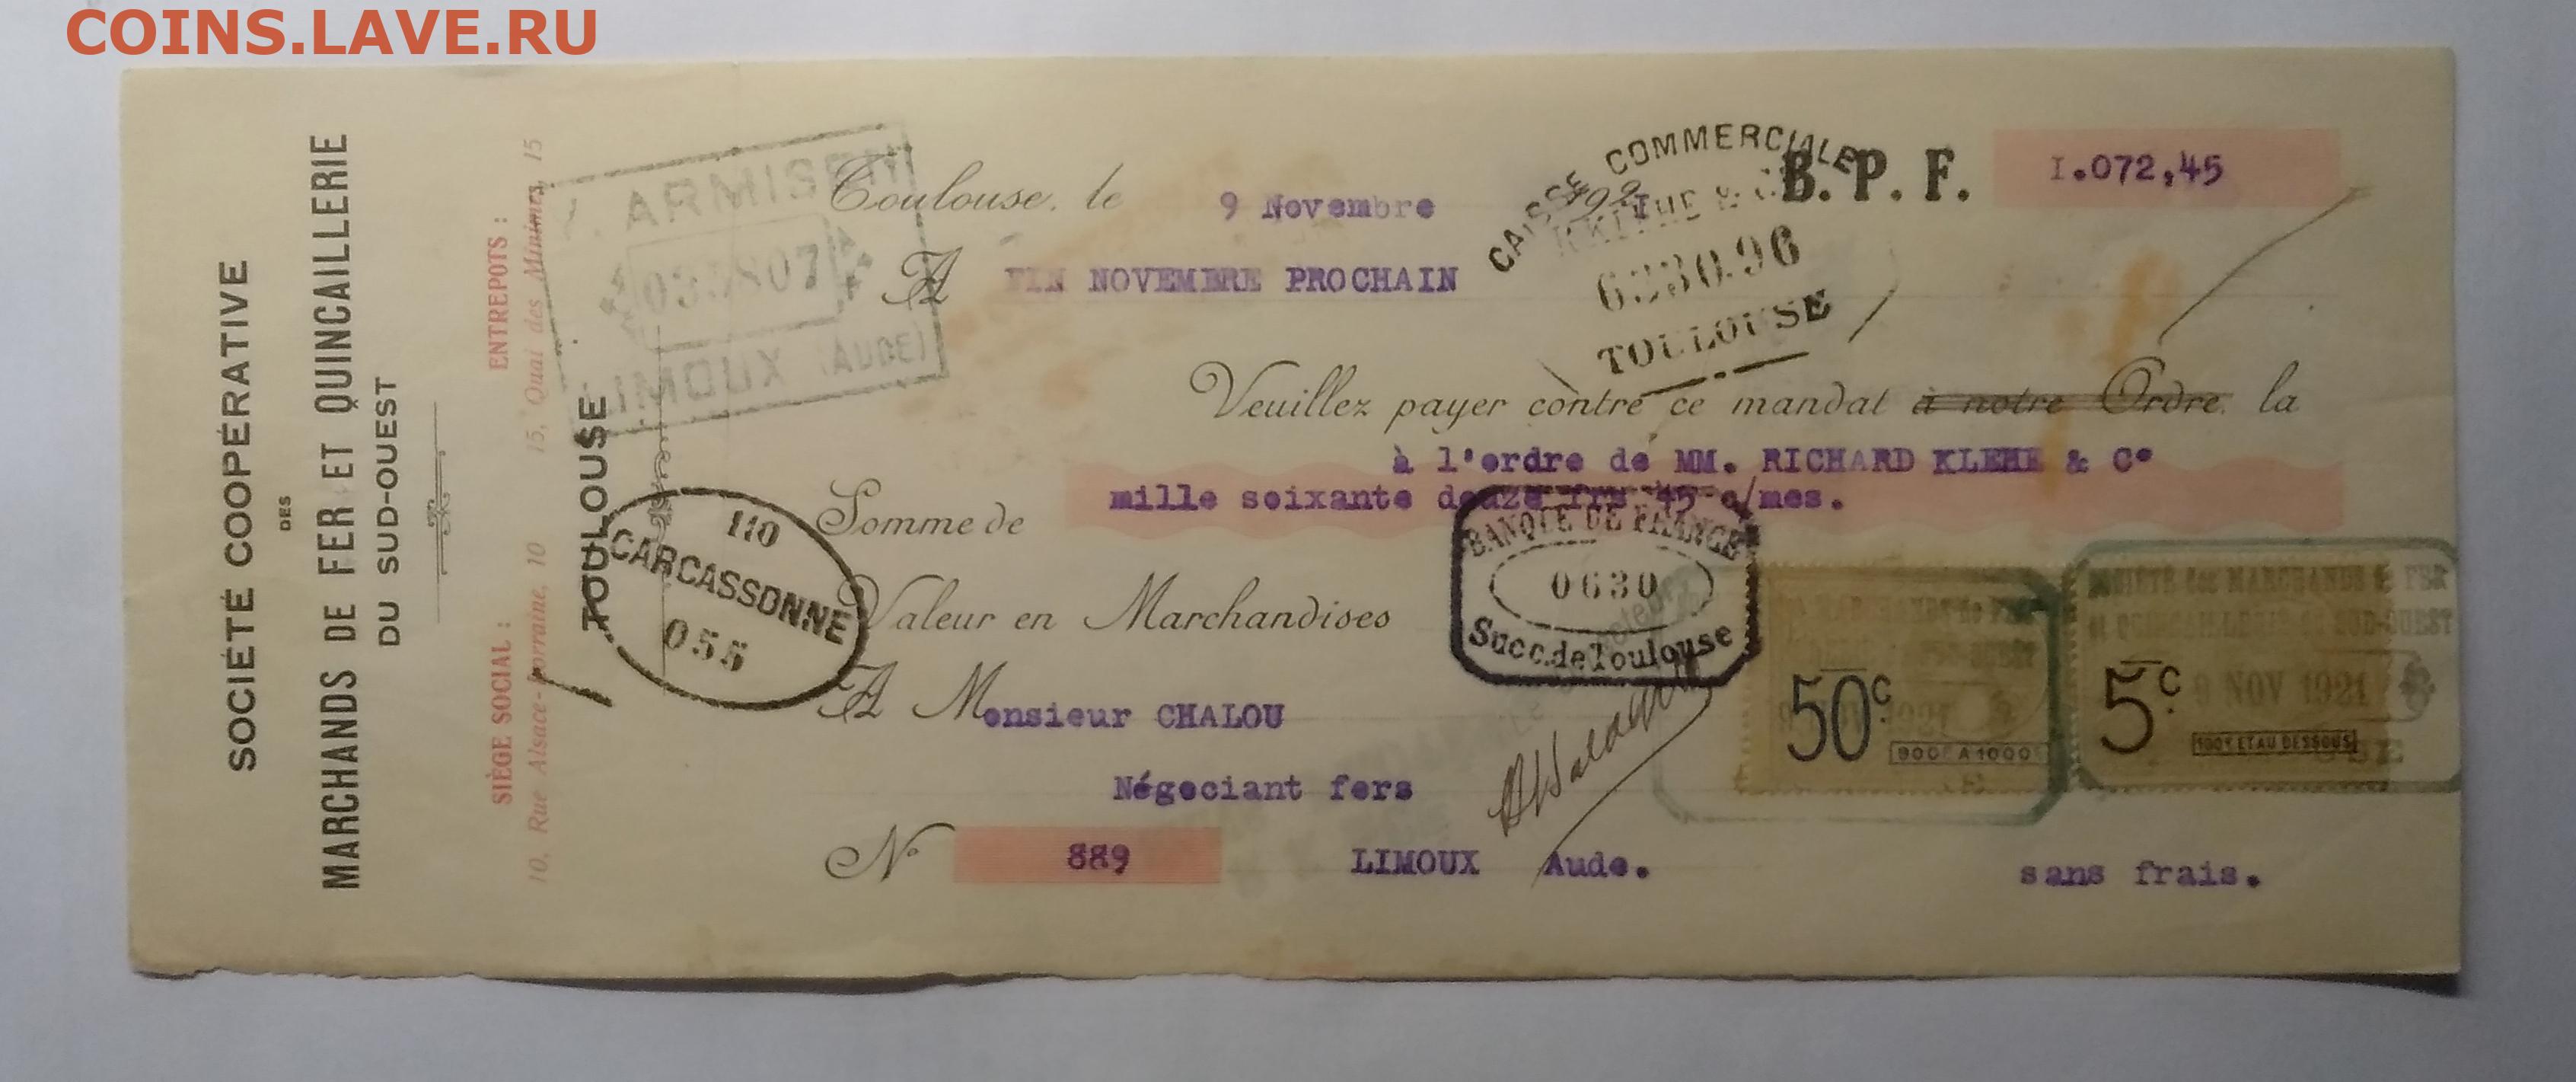 COINS.LAVE.RU
SOCIÉTÉ COOPÉRATIVE
DES
MARCHANDS DE FER ET QUINCAILLERIE
DU SUD-OUEST
SIÈGE SOCIAL : ENTREPOTS :
10, Rue Alsace-Lorraine, 10 15, Quai des Minimes, 15
TOULOUSE
ARMISEN
LIMOUX (AUDE)
Toulouse, le 9 Novembre 192I
B. P. F. I.072,45
CAISSE COMMERCIALE
TOULOUSE
A FIN NOVEMBRE PROCHAIN
Veuillez payer contre ce mandat à notre Ordre, la
à l'ordre de MM. RICHARD KLEHE & Co
Somme de mille soixante douze frs 45 c/mes.
110
CARCASSONNE
055
BANQUE DE FRANCE
0630
Succ. de Toulouse
Valeur en Marchandises
A Monsieur CHALOU
Négociant fers
No 889 LIMOUX Aude.
sans frais.
50c
900F A 1000F
SOCIÉTÉ des MARCHANDS de FER
et QUINCAILLERIE du SUD-OUEST
9 NOV 1921
5c
100F ET AU DESSOUS